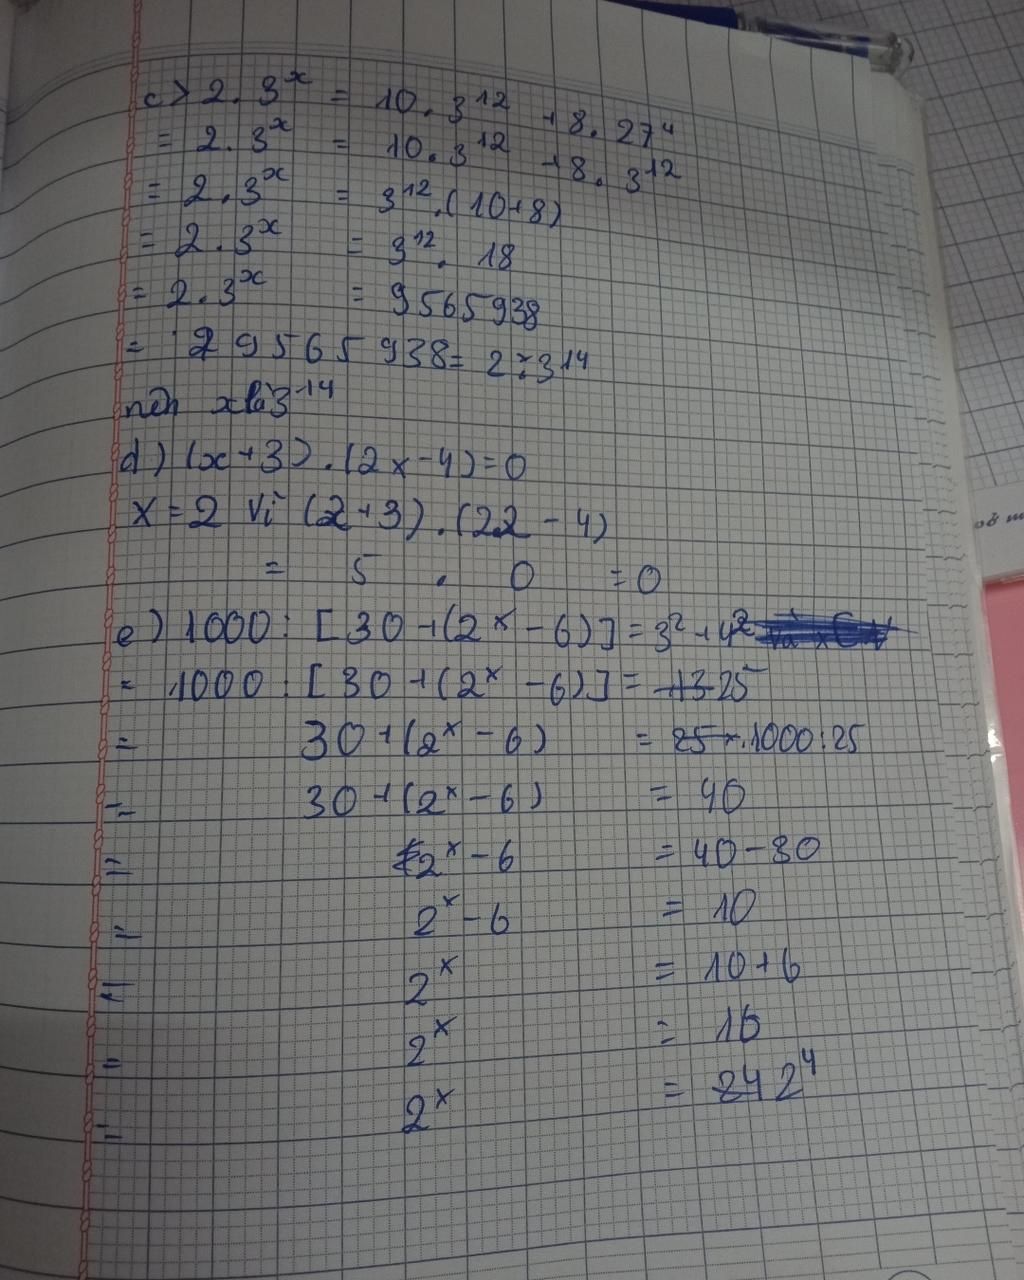 c) 2 . 3^x = 10 . 3^12 + 8 . 27^4
= 2 . 3^x = 10 . 3^12 + 8 . 3^12
= 2 . 3^x = 3^12 . (10+8)
= 2 . 3^x = 3^12 . 18
= 2 . 3^x = 9565938
= 29565938 = 2 : 3^14
nên x là 3^14
d) (x+3) . (2x-4) = 0
x = 2 Vì (2+3) . (22 - 4)
= 5 . 0 = 0
e) 1000 : [30 + (2^x - 6)] = 3^2 + 4^2
= 1000 : [30 + (2^x - 6)] = 25
= 30 + (2^x - 6) = 1000 : 25
= 30 + (2^x - 6) = 40
= 2^x - 6 = 40 - 30
= 2^x - 6 = 10
= 2^x = 10 + 6
= 2^x = 16
= 2^x = 2^4